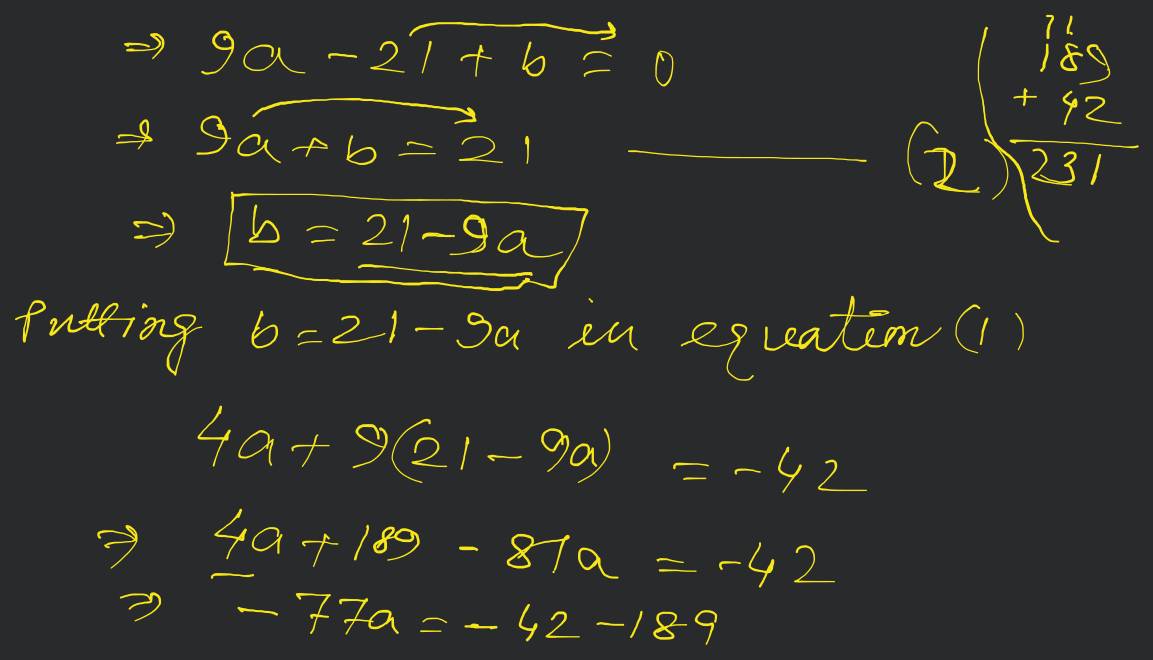 ⇒ 9a - 21 + b = 0
⇒ 9a + b = 21 ——— (2)
⇒ b = 21 - 9a
11
189
+ 42
231
Putting b = 21 - 9a in equation (1)
4a + 9(21 - 9a) = -42
⇒ 4a + 189 - 81a = -42
⇒ -77a = -42 - 189